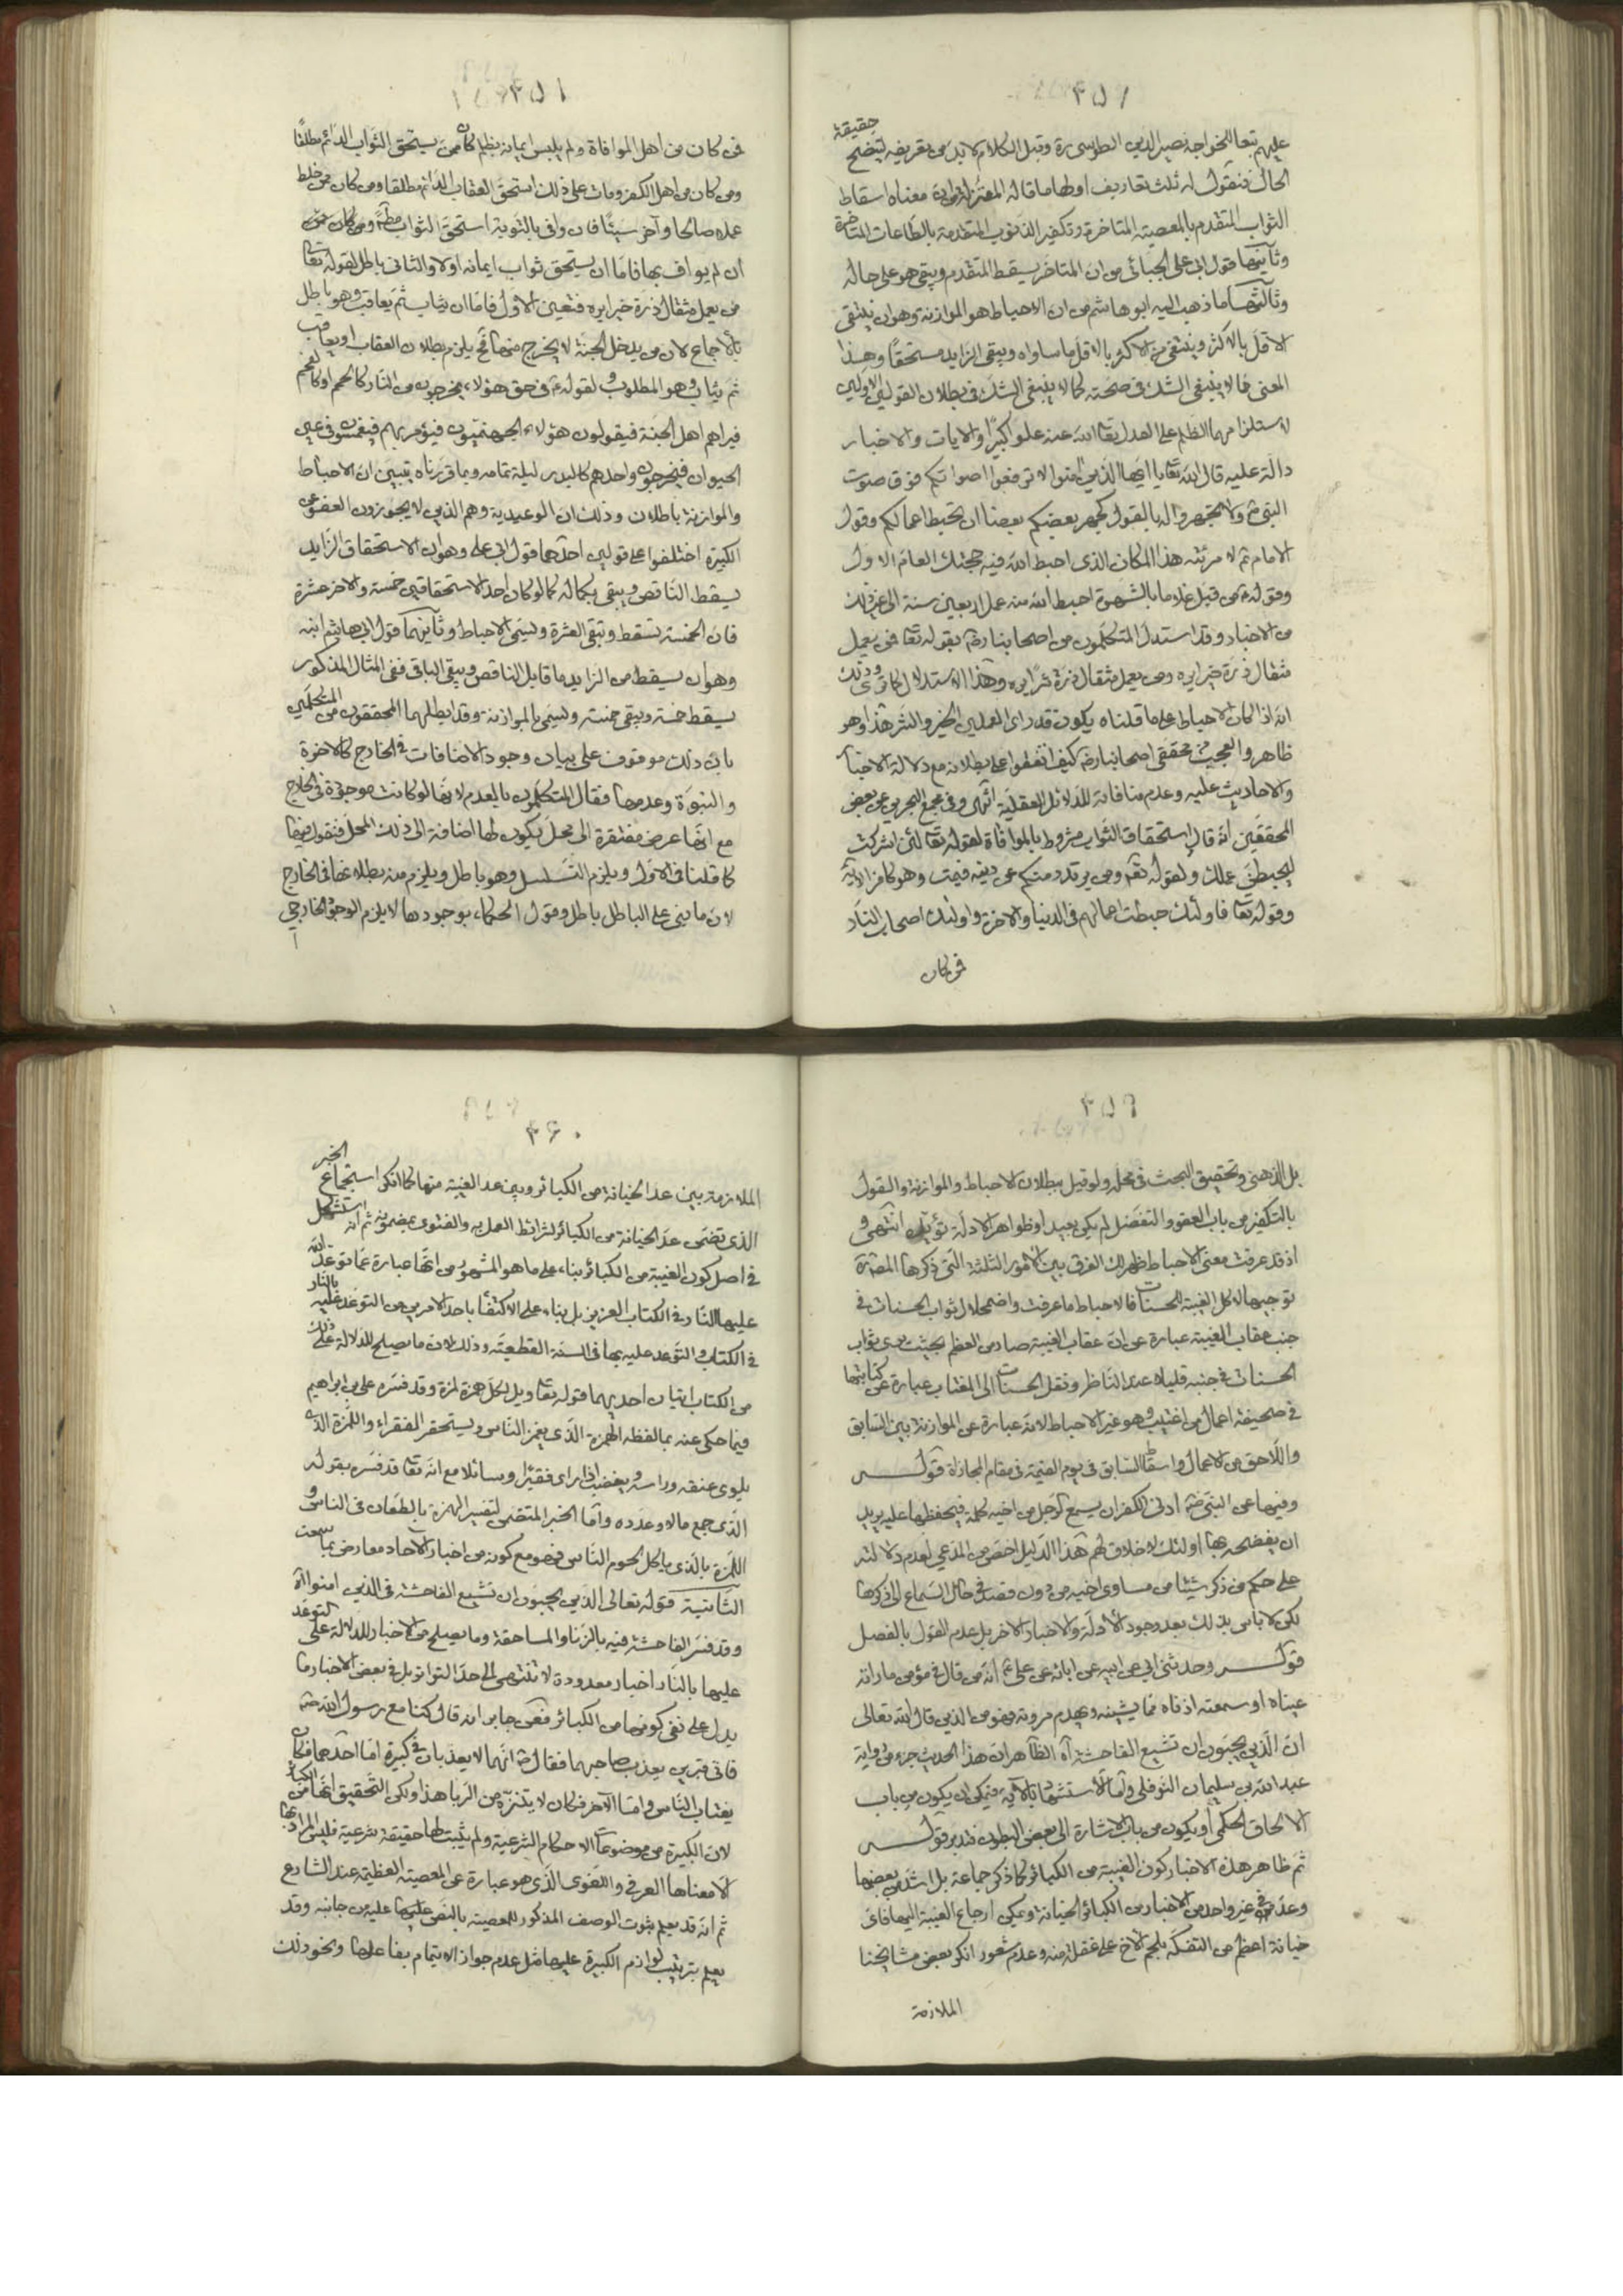 ٤٥٧
عليهم تبعا للخواجه نصير الدين الطوسي ره وقبل الكلام لابد من تعريفه ليتضح حقيقة
الحال فنقول له ثلث تعاريف اولها ما قاله المعتزلة من ان معناه اسقاط
الثواب المتقدم بالمعصية المتاخرة وتكفير الذنوب المتقدمة بالطاعات المتاخرة
وثانيها قول ابي علي الجبائي من ان المتاخر يسقط المتقدم ويبقى هو على حاله
وثالثها ما ذهب اليه ابو هاشم من ان الاحباط هو الموازنة وهو ان ينتفي
الاقل بالاكثر وينتفي من الاكثر بالاقل ما ساواه ويبقى الزايد مستحقا وهذا
المعنى مما لا ينبغي الشك في صحته كما لا ينبغي الشك في بطلان القولين الاولين
لاستلزامهما الظلم على العدل تعالى الله عنه علوا كبيرا والايات والاخبار
دالة عليه قال الله تعا يا ايها الذين امنوا لا ترفعوا اصواتكم فوق صوت
النبي ص ولا تجهروا له بالقول كجهر بعضكم بعضا ان تحبط اعمالكم وقول
الامام ع لامرئته هذا المكان الذي احبط الله فيه حجتك العام الاول
وقوله ع من قبل غلاما بالشهوة احبط الله منه عمل اربعين سنة الى غير ذلك
من الاخبار وقد استدل المتكلمون من اصحابنا رض بقوله تعا فمن يعمل
مثقال ذرة خيرا يره ومن يعمل مثقال ذرة شرا يره وهذا الاستدلال كما ترى وذلك
انه اذا كان الاحباط على ما قلناه يكون قد راى العملين الخير والشر هذا وهو
ظاهر والعجب من محققي اصحابنا رض كيف اتفقوا على بطلانه مع دلالة الاخبار
والاحاديث عليه وعدم منافاته للدلائل العقلية انتهى وفي مجمع البحرين عن بعض
المحققين انه قال استحقاق الثواب مشروط بالموافاة لقوله تعا لئن اشركت
ليحبطن عملك ولقوله تع ومن يرتدد منكم عن دينه فيمت وهو كافر الاية
وقوله تعا فاولئك حبطت اعمالهم في الدنيا والاخرة واولئك اصحاب النار
فمن كان
٤٥٨
فمن كان من اهل الموافاة ولم يلبس ايمانه بظلم كان ممن يستحق الثواب الدائم مطلقا
ومن كان من اهل الكفر ومات على ذلك استحق العقاب الدائم مطلقا ومن كان ممن خلط
عملا صالحا وآخر سيئا فان وافى بالتوبة استحق الثواب مطلقا
ان لم يواف بها فاما ان يستحق ثواب ايمانه اولا والثاني باطل لقوله تعا
فمن يعمل مثقال ذرة خيرا يره فتعين الاول فاما ان يثاب ثم يعاقب وهو باطل
بالاجماع لان من يدخل الجنة لا يخرج منها فح يلزم بطلان العقاب او يعاقب
ثم يثاب وهو المطلوب ولقوله ع في حق هؤلاء يخرجون من النار كالحمم او كالفحم
فيراهم اهل الجنة فيقولون هؤلاء الجهنميون فيؤمر بهم فيغمسون في عين
الحيوان فيخرجون واحدهم كالبدر ليلة تمامه وبما قررناه يتبين ان الاحباط
والموازنة باطلان وذلك ان الوعيدية وهم الذين لا يجوزون العفو عن
الكبيرة اختلفوا على قولين احدهما قول ابي علي وهو ان الاستحقاق الزايد
يسقط الناقص ويبقى بكماله كما لو كان احد الاستحقاقين خمسة والاخر عشرة
فان الخمسة تسقط وتبقى العشرة ويسمى الاحباط وثانيهما قول ابي هاشم ابنه
وهو ان يسقط من الزايد ما قابل الناقص ويبقى الباقي ففي المثال المذكور
يسقط خمسة ويبقى خمسة ويسمى بالموازنة وقد ابطلهما المحققون من المتكلمين
بان ذلك موقوف على بيان وجود الاضافات في الخارج كالاخوة
والنبوة وعدمها فقال المتكلمون بالعدم لانها لو كانت موجودة في الخارج
مع انها عرض مفتقرة الى محل يكون لها اضافة الى ذلك المحل فنقول فيها
كما قلنا في الاول ويلزم التسلسل وهو باطل ويلزم منه بطلانها في الخارج
لان ما بني على الباطل باطل وقول الحكماء بوجودها لا يلزم الوجود الخارجي
٤٥٩
بل الذهني وتحقيق البحث في محله ولو قيل ببطلان الاحباط والموازنة والقول
بالتكفير من باب العفو والتفضل لم يكن بعيدا وظواهر الادلة تؤيده انتهى و
اذ قد عرفت معنى الاحباط ظهر لك الفرق بين الامور الثلثة التي ذكرها المصره
توجيها لاكل الغيبة الحسنات فالاحباط ما عرفت واضمحلال ثواب الحسنات في
جنب عقاب الغيبة عبارة عن ان عقاب الغيبة صار من العظم بحيث يرى ثواب
الحسنات في جنبه قليلا عند الناظر ونقل الحسنات الى المغتاب عبارة عن كتابتها
في صحيفة اعمال من اغتيب وهو غير الاحباط لانه عبارة عن الموازنة بين السابق
واللاحق من الاعمال واسقاط السابق في يوم القيمة في مقام المجازاة قولـــه
وفيها عن النبي ص ادنى الكفر ان يسمع الرجل من اخيه كلمة فيحفظها عليه يريد
ان يفضحه بها اولئك لا خلاق لهم هذا الدليل اخص من المدعى لعدم دلالته
على حكم من ذكر شيئا من مساوي اخيه من دون قصد في حال السماع الى ذكرها
لكن لا باس بذلك بعد وجود الادلة والاخبار الاخر بل عدم القول بالفصل
قولـــه وحدثني ابي عن ابيه عن ابائه عن علي ع انه من قال في مؤمن ما راته
عيناه او سمعته اذناه مما يشينه ويهدم مروته فهو من الذين قال الله تعالى
ان الذين يحبون ان تشيع الفاحشة آه الظاهر ان هذا الحديث جزء من رواية
عبد الله بن سليمان النوفلي واما الاستشهاد بالاية فيمكن ان يكون من باب
الالحاق الحكمي او يكون من باب الاشارة الى بعض البطون فتدبر قولـــه
ثم ظاهر هذه الاخبار كون الغيبة من الكبائر كما ذكر جماعة بل اشد من بعضها
وعد في غير واحد من الاخبار من الكبائر الخيانة ويمكن ارجاع الغيبة اليها فاي
خيانة اعظم من التفكه بلحم الاخ على غفلة منه وعدم شعور انكر بعض مشايخنا
الملازمة
٤٦٠
الملازمة بين عد الخيانة من الكبائر وبين عد الغيبة منها كما انكر استجماع الخبر
الذي تضمن عد الخيانة من الكبائر لشرائط العمل به والفتوى بمضمونه ثم انه استشكل
في اصل كون الغيبة من الكبائر بناء على ما هو المشهور من انها عبارة عما توعد الله
عليها النار في الكتاب العزيز بل بناء على الاكتفاء باحد الامرين من التوعد عليه بالنار
في الكتاب والتوعد عليه بها في السنة القطعية وذلك لان ما يصلح للدلالة على ذلك
من الكتاب ايتان احديهما قوله تعا ويل لكل همزة لمزة وقد فسره علي بن ابراهيم
فيما حكي عنه بما لفظه الهمزة الذي يغمز الناس ويستحقر الفقراء واللمزة الذي
يلوي عنقه وراسه ويغضب اذا راى فقيرا وسائلا مع انه تعا قد فسره بقوله
الذي جمع مالا وعدده واما الخبر المتضمن لتفسير الهمزة بالطعان في الناس و
اللمزة بالذي ياكل لحوم الناس فهو مع كونه من اخبار الاحاد معارض بما سمعت
الثانية قوله تعالى الذين يحبون ان تشيع الفاحشة في الذين امنوا آه
وقد فسر الفاحشة فيه بالزنا والمساحقة وما يصلح من الاخبار للدلالة على التوعد
عليها بالنار اخبار معدودة لا تنتهي الى حد التواتر بل في بعض الاخبار ما
يدل على نفي كونها من الكبائر فعن جابر انه قال كنا مع رسول الله ص
فاتى قبرين يعذب صاحبهما فقال ص انهما لا يعذبان في كبيرة اما احدهما فكان
يغتاب الناس واما الاخر فكان لا يتنزه من الريا هذا ولكن التحقيق انها من الكبائر
لان الكبيرة من موضوعات الاحكام الشرعية ولم يثبت لها حقيقة شرعية فليس المراد بها
الا معناها العرفي واللغوي الذي هو عبارة عن المعصية العظيمة عند الشارع
ثم انه قد يعلم ثبوت الوصف المذكور للمعصية بالنص عليها عليه من جانبه وقد
يعلم بترتيب لوازم الكبيرة عليها مثل عدم جواز الايتمام بفاعلها ونحو ذلك